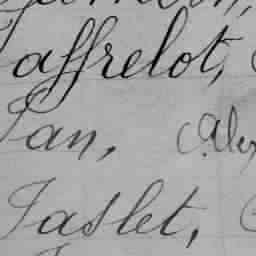 Jaffrelot,
Jan, (Alex
Jaslet,